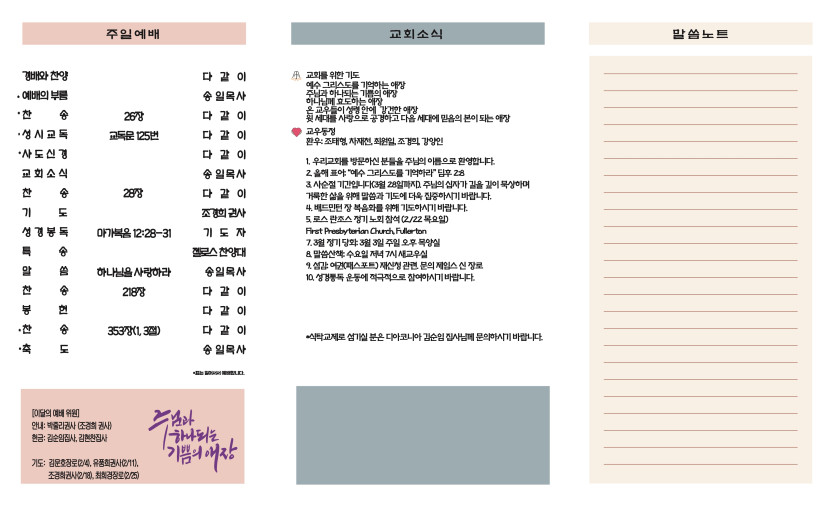 주일예배
경배와 찬양 다 같 이
*예배의 부름 송 일 목 사
*찬 송 26장 다 같 이
*성 시 교 독 교독문 125번 다 같 이
*사 도 신 경 다 같 이
교 회 소 식 송 일 목 사
찬 송 28장 다 같 이
기 도 조경희 권사
성 경 봉 독 마가복음 12:28-31 기 도 자
특 송 켈로스 찬양대
말 씀 하나님을 사랑하라 송 일 목 사
찬 송 218장 다 같 이
봉 헌 다 같 이
*찬 송 353장(1, 3절) 다 같 이
*축 도 송 일 목 사
*표는 일어서서 예배합니다.
[이달의 예배 위원]
안내: 박줄리권사 (조경희 권사)
헌금: 김순임집사, 김현천집사
기도: 김문호장로(2/4), 유품희권사(2/11),
조경희권사(2/18), 최희경장로(2/25)
주님과
하나되는
기쁨의 애장
교회소식
교회를 위한 기도
예수 그리스도를 기억하는 애장
주님과 하나되는 기쁨의 애장
하나님께 효도하는 애장
온 교우들이 성령 안에 강건한 애장
윗 세대를 사랑으로 공경하고 다음 세대에 믿음의 본이 되는 애장
교우동정
환우: 조태형, 차재천, 최원일, 조경희, 강양인
1. 우리교회를 방문하신 분들을 주님의 이름으로 환영합니다.
2. 올해 표어: "예수 그리스도를 기억하라" 딤후 2:8
3. 사순절 기간입니다(3월 28일까지). 주님의 십자가 길을 깊이 묵상하며
거룩한 삶을 위해 말씀과 기도에 더욱 집중하시기 바랍니다.
4. 배드민턴 장 복음화를 위해 기도하시기 바랍니다.
5. 로스 란초스 정기 노회 참석 (2/22 목요일)
First Presbyterian Church, Fullerton
7. 3월 정기 당회: 3월 3일 주일 오후 목양실
8. 말씀산책: 수요일 저녁 7시 새교우실
9. 섬김: 여권(패스포트) 재신청 관련, 문의 제임스 신 장로
10. 성경통독 운동에 적극적으로 참여하시기 바랍니다.
*식탁교제로 섬기실 분은 디아코니아 김순임 집사님께 문의하시기 바랍니다.
말씀노트